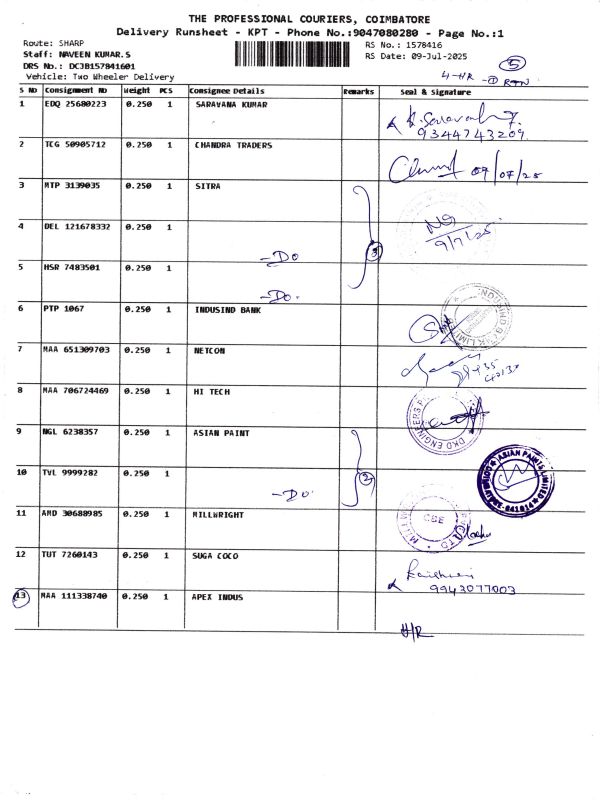 THE PROFESSIONAL COURIERS, COIMBATORE
Delivery Runsheet - KPT - Phone No.:9047080280 - Page No.:1
Route: SHARP
RS No.: 1578416
Staff: NAVEEN KUMAR.S
RS Date: 09-Jul-2025
DRS No.: DCJB157841601
Vehicle: Two Wheeler Delivery
5
4-HR -1 RTN
S No Consignment No Weight PCS Consignee Details Remarks Seal & Signature
1 EDQ 25680223 0.250 1 SARAVANA KUMAR
9344743209
2 TCG 50905712 0.250 1 CHANDRA TRADERS
07/07/25
3 MTP 3139035 0.250 1 SITRA
9/7/25
4 DEL 121678332 0.250 1
-Do 3
5 HSR 7483501 0.250 1
-Do.
6 PTP 1067 0.250 1 INDUSIND BANK
7 MAA 651309703 0.250 1 NETCON
8 MAA 706724469 0.250 1 HI TECH
DKD ENGINEERS
9 NGL 6238357 0.250 1 ASIAN PAINT
ASIAN PAINTS LIMITED
641014
10 TVL 9999282 0.250 1
-Do. 2
11 AMD 30688985 0.250 1 MILLWRIGHT
CBE
12 TUT 7260143 0.250 1 SUGA COCO
9943077003
13 MAA 111338740 0.250 1 APEX INDUS
H/R